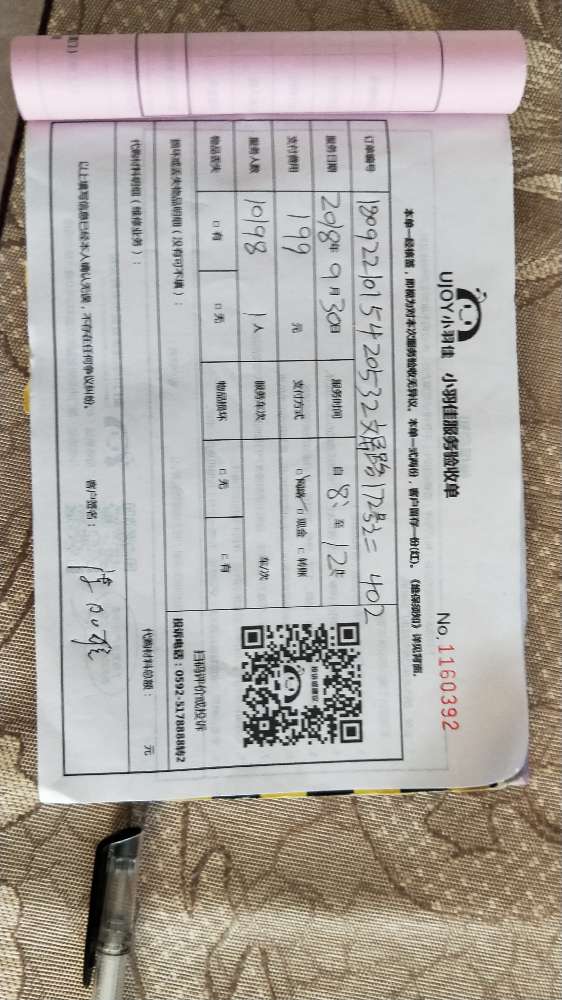 UJOY小羽佳 小羽佳服务验收单
No. 1160392
本单一经核签，即视为对本次服务验收无异议。本单一式两份，客户留存一份(红)。《维保须知》详见背面。
订单编号 180922101542053 2
17号之二 402
服务日期 2018年 9月 30日 服务时间 自 8: 至 12
支付费用 199 元 支付方式 □网络 □现金 □转账
服务人数 10198 1人 服务车次 车/次
物品丢失 □有 □无 物品损坏 □无 □有
扫码评价或投诉
投诉电话：0592-5178888转2
损坏或丢失物品明细（没有可不填）：
代购材料明细（维修业务）： 代购材料总额： 元
以上填写信息已经本人确认无误，不存在任何争议纠纷。 客户签名：